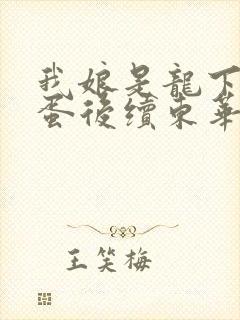 我娘是龍下
蛋後續東華
王笑梅